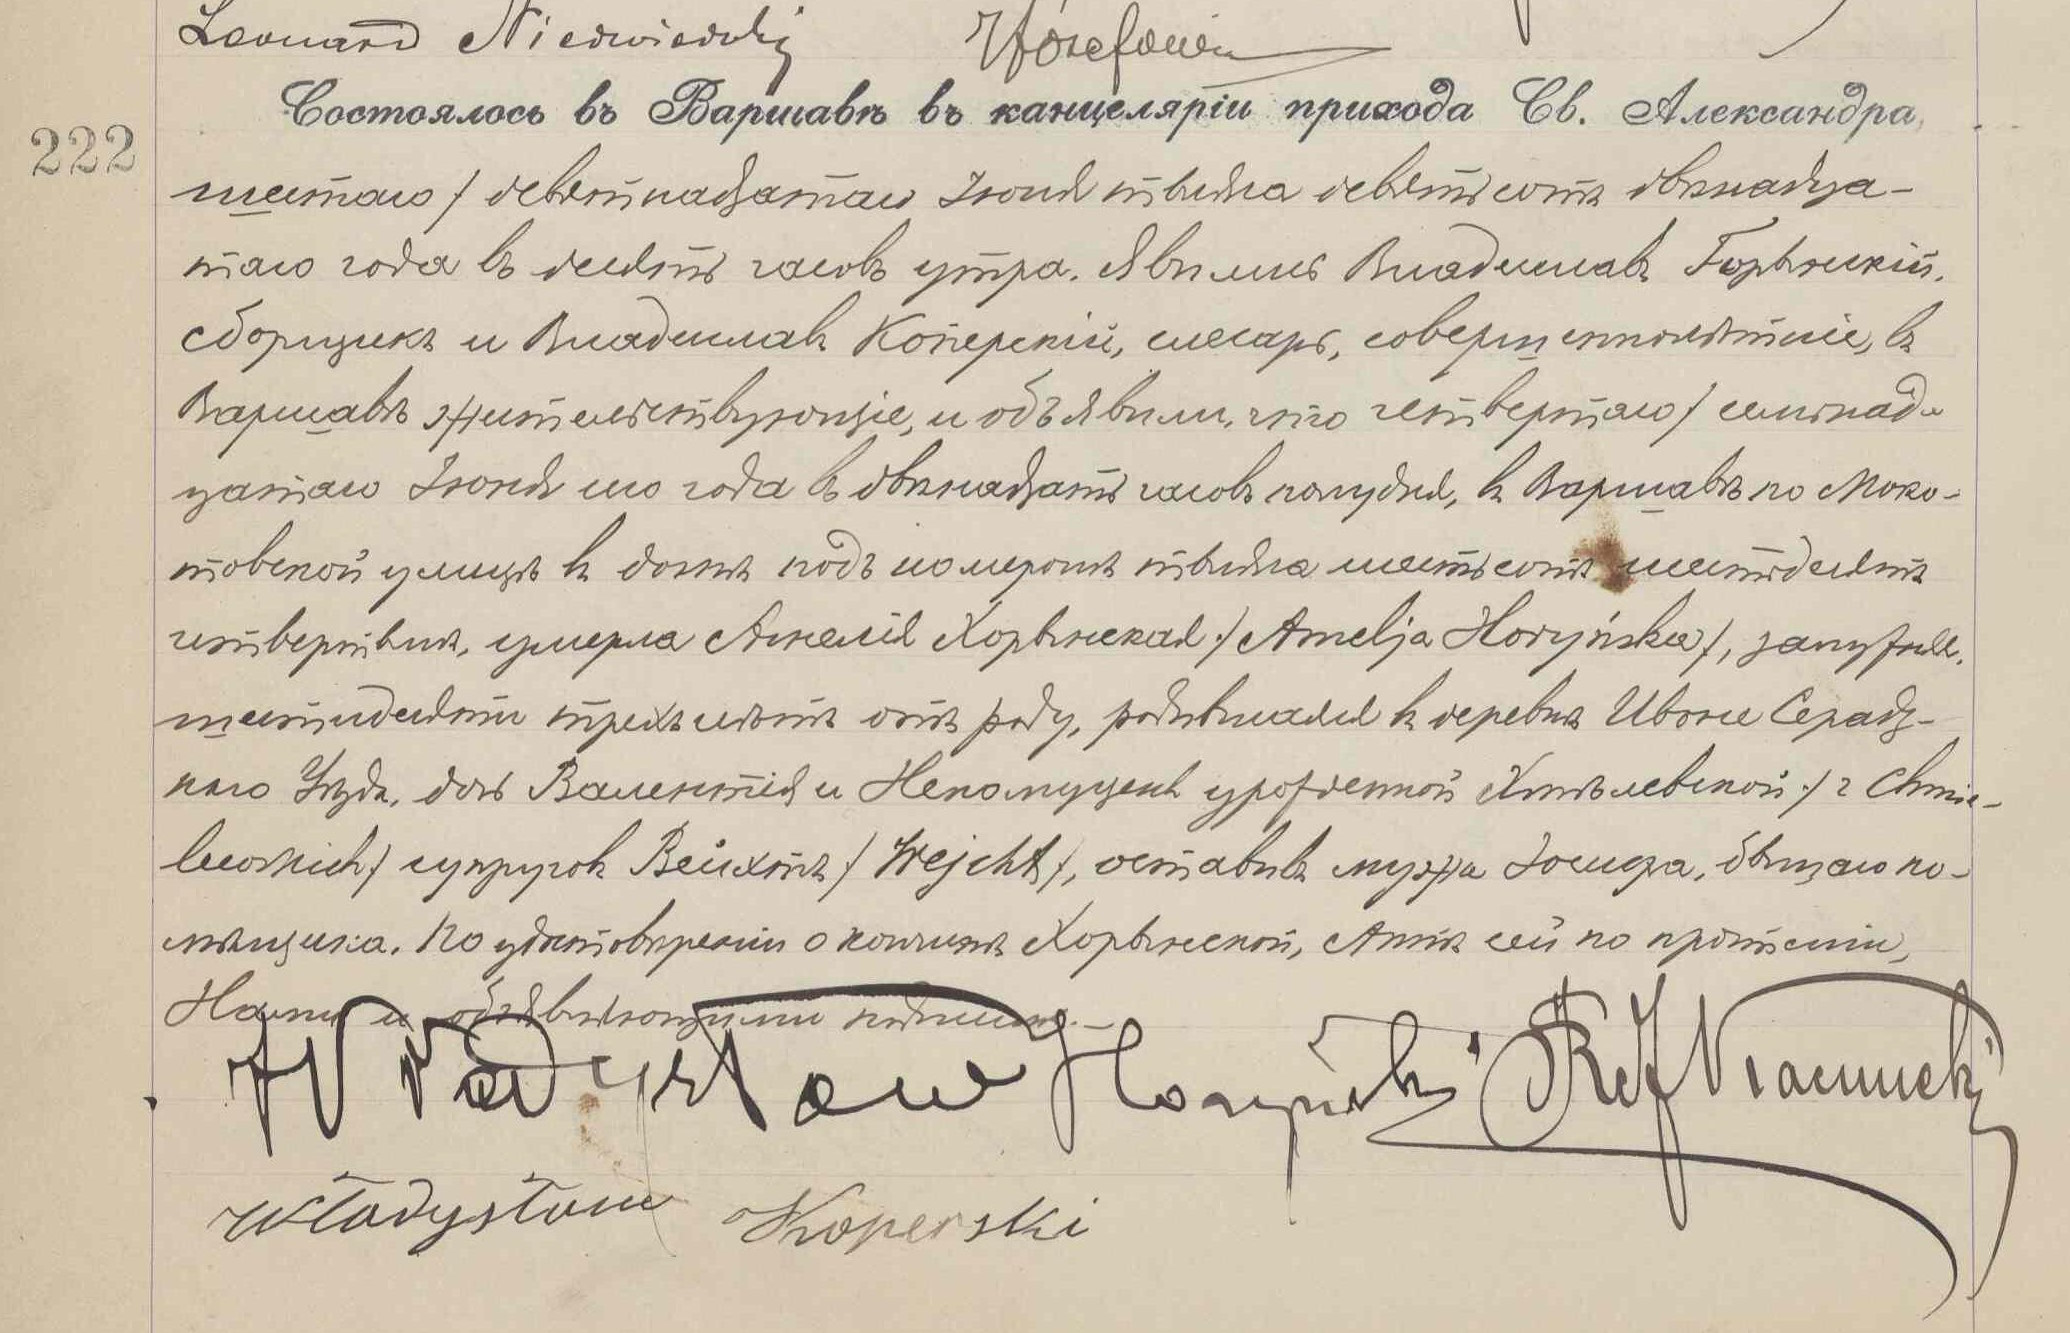 Leonard Niedwiedzki Józefowicz
Состоялось въ Варшавѣ въ канцеляріи прихода Св. Александра
222
шестаго / девятнадцатаго Іюня тысяча девятьсотъ двѣнадца-
таго года въ десять часовъ утра. Явились Владиславъ Горынскій,
сборщикъ и Владиславъ Коперскій, слесарь, совершеннолѣтніе, въ
Варшавѣ жительствующіе, и объявили, что четвертаго / семнад-
цатаго Іюня сего года въ двѣнадцать часовъ полудня, въ Варшавѣ по Моко-
товской улицѣ въ домѣ подъ номеромъ тысяча шестьсотъ шестьдесятъ
четвертымъ, умерла Амелія Хорынская / Amelja Horyńska /, замужняя,
шестидесяти трехъ лѣтъ отъ роду, родившаяся въ деревнѣ Ивоне Серадз-
каго Уѣзда, дочь Валентія и Непомуцены урожденной Хмѣлевской / z Chmie-
lewskich / супруговъ Вейхтъ / Wejcht /, оставивъ мужа Іосифа, бывшаго по-
мѣщика. По удостовѣреніи о кончинѣ Хорынской, Актъ сей по прочтеніи,
Нами и объявляющими подписанъ.-
Władysław Horyński
Władysław Koperski